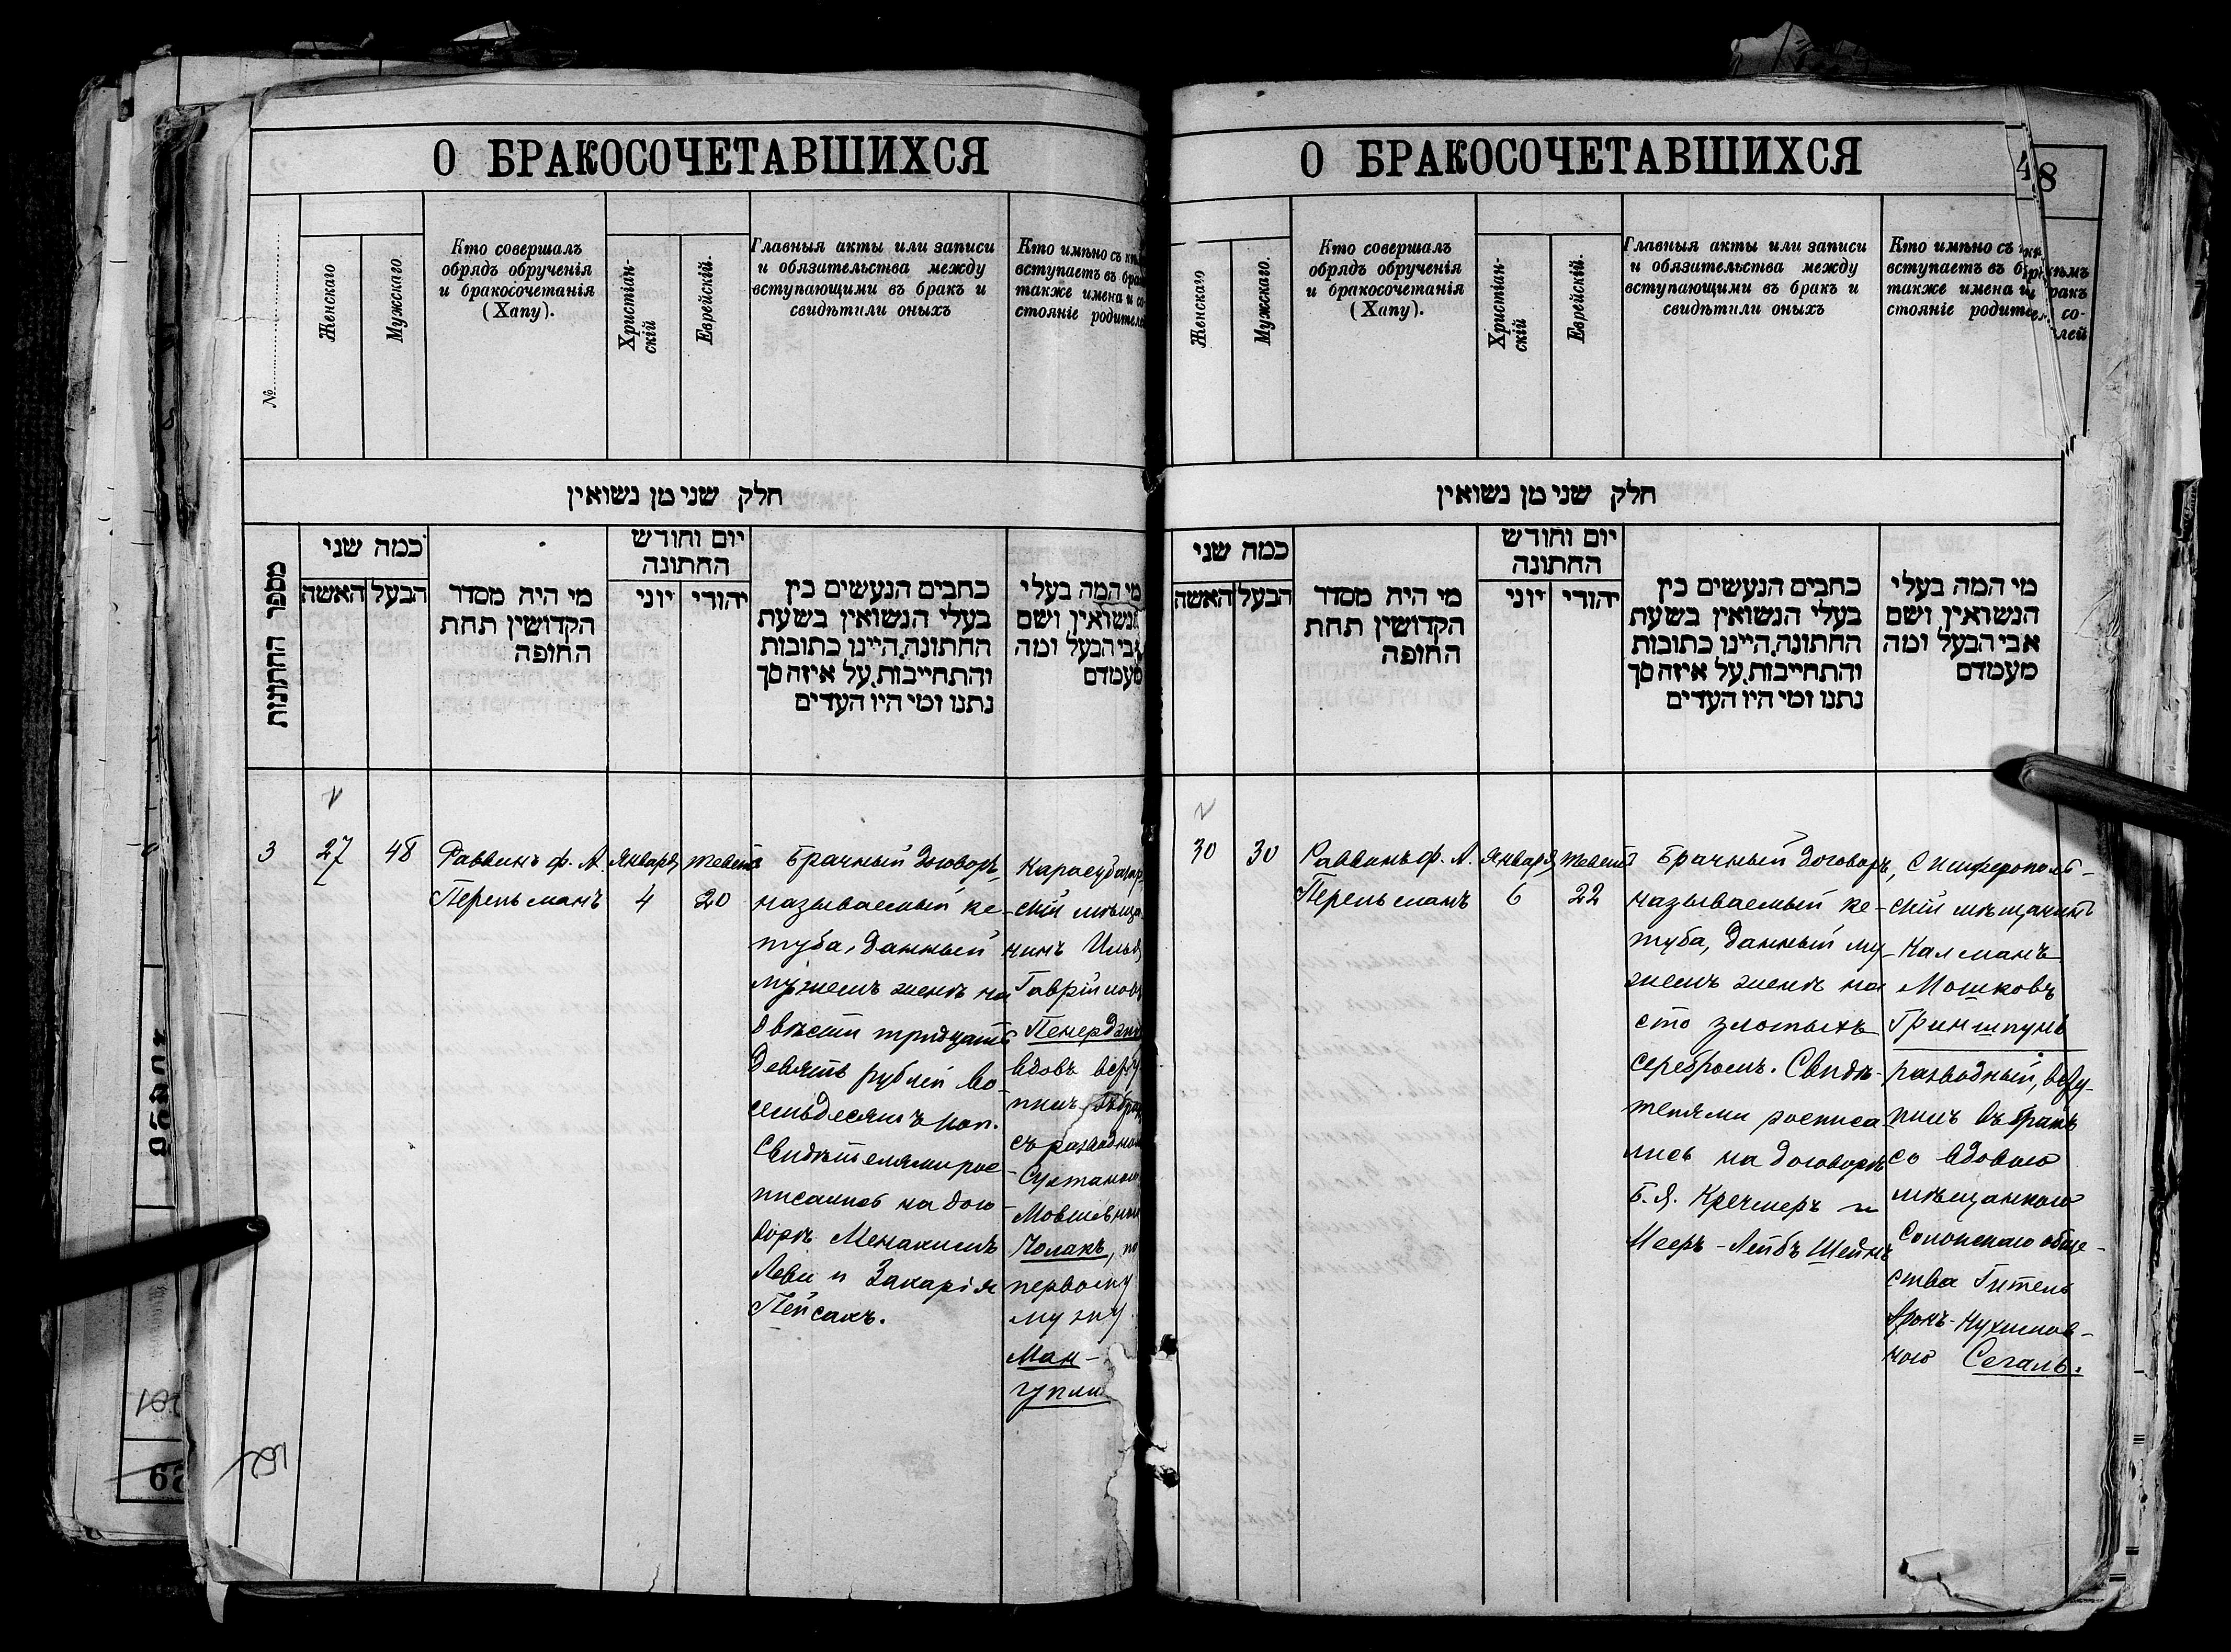 О БРАКОСОЧЕТАВШИХСЯ
№
Женскаго
Мужскаго
Кто совершалъ
обрядъ обрученія
и бракосочетанія
(Хапу).
Христіан-
скій
Еврейскій.
Главныя акты или записи
и обязательства между
вступающими въ бракъ и
свидѣтили оныхъ
Кто имѣно съ
вступаетъ въ
также имена и со-
стояніе
חלק שני מן נשואין
מספר החתונות
כמה שני
האשה
הבעל
מי היה מסדר
הקדושין תחת
החופה
יום וחודש
החתונה
יוני
יהודי
כתבים הנעשים בין
בעלי הנשואין בשעת
החתונה.היינו כתובות
והתחייבות.על איזה סך
נתנו ומי היו העדים
מי המה בעלי
הנשואין ושם
אבי הבעל ומה
מעמדם
3
27
48
Раввинъ ф. А.
Перельманъ
Января
4
Теветъ
20
Брачный договоръ,
называемый ке-
туба, данный
мужемъ женѣ на
двѣсти тридцать
девять рублей во-
семьдесятъ коп.
Свидѣтелями рос-
писались на дого-
ворѣ Менахимъ
Леви и Захарія
Пейсахъ.
Карасубазар
скій мѣща
нинъ Илья
Гавріиловъ
вдовъ
съ
Султаною
Мовшевною
первому
мужу
Ман-
гупли
152
201
О БРАКОСОЧЕТАВШИХСЯ
48
Женскаго
Мужскаго.
Кто совершалъ
обрядъ обрученія
и бракосочетанія
(Хапу).
Христіан-
скій
Еврейскій.
Главныя акты или записи
и обязательства между
вступающими въ бракъ и
свидѣтили оныхъ
Кто имѣно съ кѣмъ
вступаетъ въ бракъ
также имена и со-
стояніе родителей
חלק שני מן נשואין
כמה שני
האשה
הבעל
מי היה מסדר
הקדושין תחת
החופה
יום וחודש
החתונה
יוני
יהודי
כתבים הנעשים בין
בעלי הנשואין בשעת
החתונה.היינו כתובות
והתחייבות.על איזה סך
נתנו ומי היו העדים
מי המה בעלי
הנשואין ושם
אבי הבעל ומה
מעמדם
30
30
Раввинъ ф. А.
Перельманъ
Января
6
Теветъ
22
Брачный договоръ,
называемый ке-
туба, данный му-
жемъ женѣ на
сто злотыхъ
серебромъ. Свидѣ-
телями росписа-
лись на договорѣ
Б. Я. Кречмеръ и
Мееръ-Лейбъ Шейнъ
Симферополь-
скій мѣщанинъ
Калманъ
Мошковъ
Гриншпунъ
разводный, всту-
пилъ въ бракъ
со вдовою
мѣщанкою
общe-
ства Гитель
ною Сегаль.